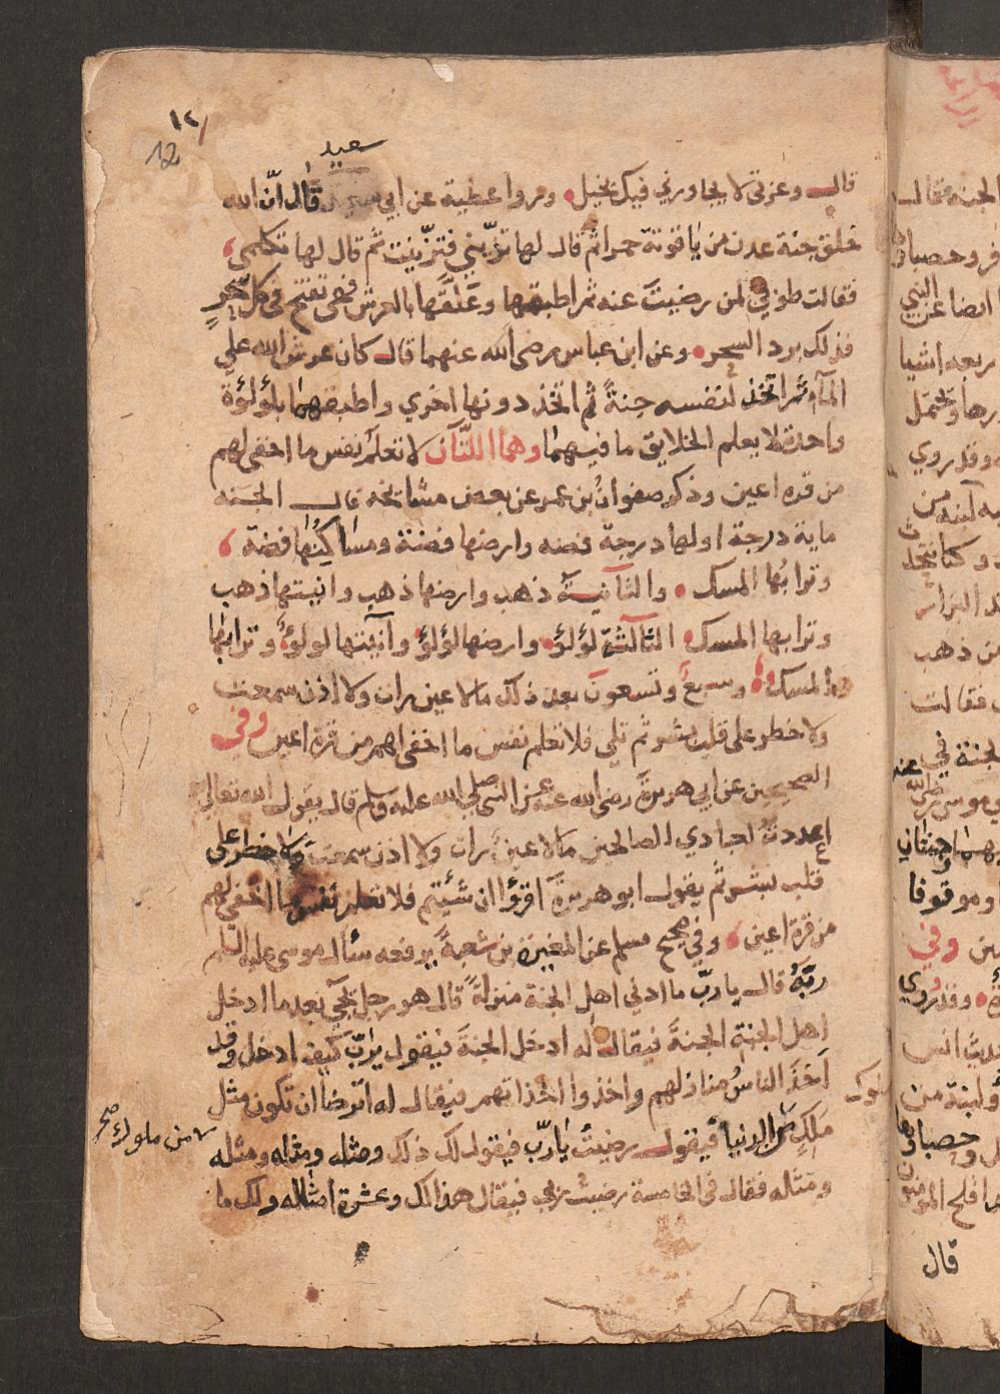 ١٢
12
سعيد
قال وعزتي لا يجاورني فيك بخيل، وروا عطية عن ابي سعيد قال انّ الله
خلق جنة عدن من ياقوتة حمرا ثم قال لها تزيّني فتزيّنت ثم قال لها تكلمي،
فقالت طوبي لمن رضيت عنه ثم اطبقها وعَلّقَها بالعرش فهي تفتح في كل سَحَرٍ
فذلك برد السحر، وعن ابن عباس رضي الله عنهما قال كان عرش الله علي
المآء ثم اتخذ لنفسه جنةً ثم اتخذ دونها اخري واطبقهما بلؤلؤة
واحدة لا يعلم الخلايق ما فيهما وهما اللتان لا تعلم نفس ما اخفي لهم
من قرة اعين وذكر صفوانُ بن عمر عن بعض مشائخه قال الجنه
ماية درجة اولها درجة فضه وارضها فضة ومساكِنُها فضة،
وترابُها المسك، والثّانيةُ ذهب وارضها ذهب وانيتها ذهب
وترابها المسك، الثالثة لؤلؤ، وارضها لؤلؤ وآنيتها لولؤ، وترابها
المسك، وسبعٌ وتسعون بعد ذلك مالا عين رات ولا اذن سمعت
ولا خطر على قلب بشر ثم تلي فلا تعلم نفس ما اخفي لهم من قرة اعين وفي
الصحيحين عن ابي هريرة رضي الله عنه عن النبي صلي الله عليه وسلم قال يقول الله تعالي
اعددتُ لعبادي الصالحين مالا عينٌ رات ولا اذن سمعت ولا خطر على
قلب بشر ثم يقول ابو هريرة اقرؤا ان شئتم فلا تعلم نفس ما اخفي لهم
من قرة اعين، وفي صحيح مسلم عن المغيرة بن شعبةَ يرفعه سأل موسى عليه السلم
ربَّهُ قال يا ربّ ما ادني اهل الجنة منزلةً قال هو رجل يجيّ بعد ما ادخل
اهل الجنةِ الجنةَ فيقال له ادخل الجنةَ فيقول يارب كيف ادخل وقد
اَخَذَ الناسُ منازلهم واخذوا اخذاتهم فيقال له اترضا ان تكون مثل
مَلِكٍ من الدنيا فيقول رضيتُ ياربّ فيقول لك ذلك ومثله ومثله ومثله
من ملوك صح
ومثله فقال في الخامسة رضيتُ ربي فيقال هذا لك وعشرة امثاله ولك ما
الجنه فقال
ايضا عن النبي
وقد روي
من ذهب
فقالت
الجنة في
وموقوفا
وفي
وقد روي
حديث انس
ولبنة من
قال